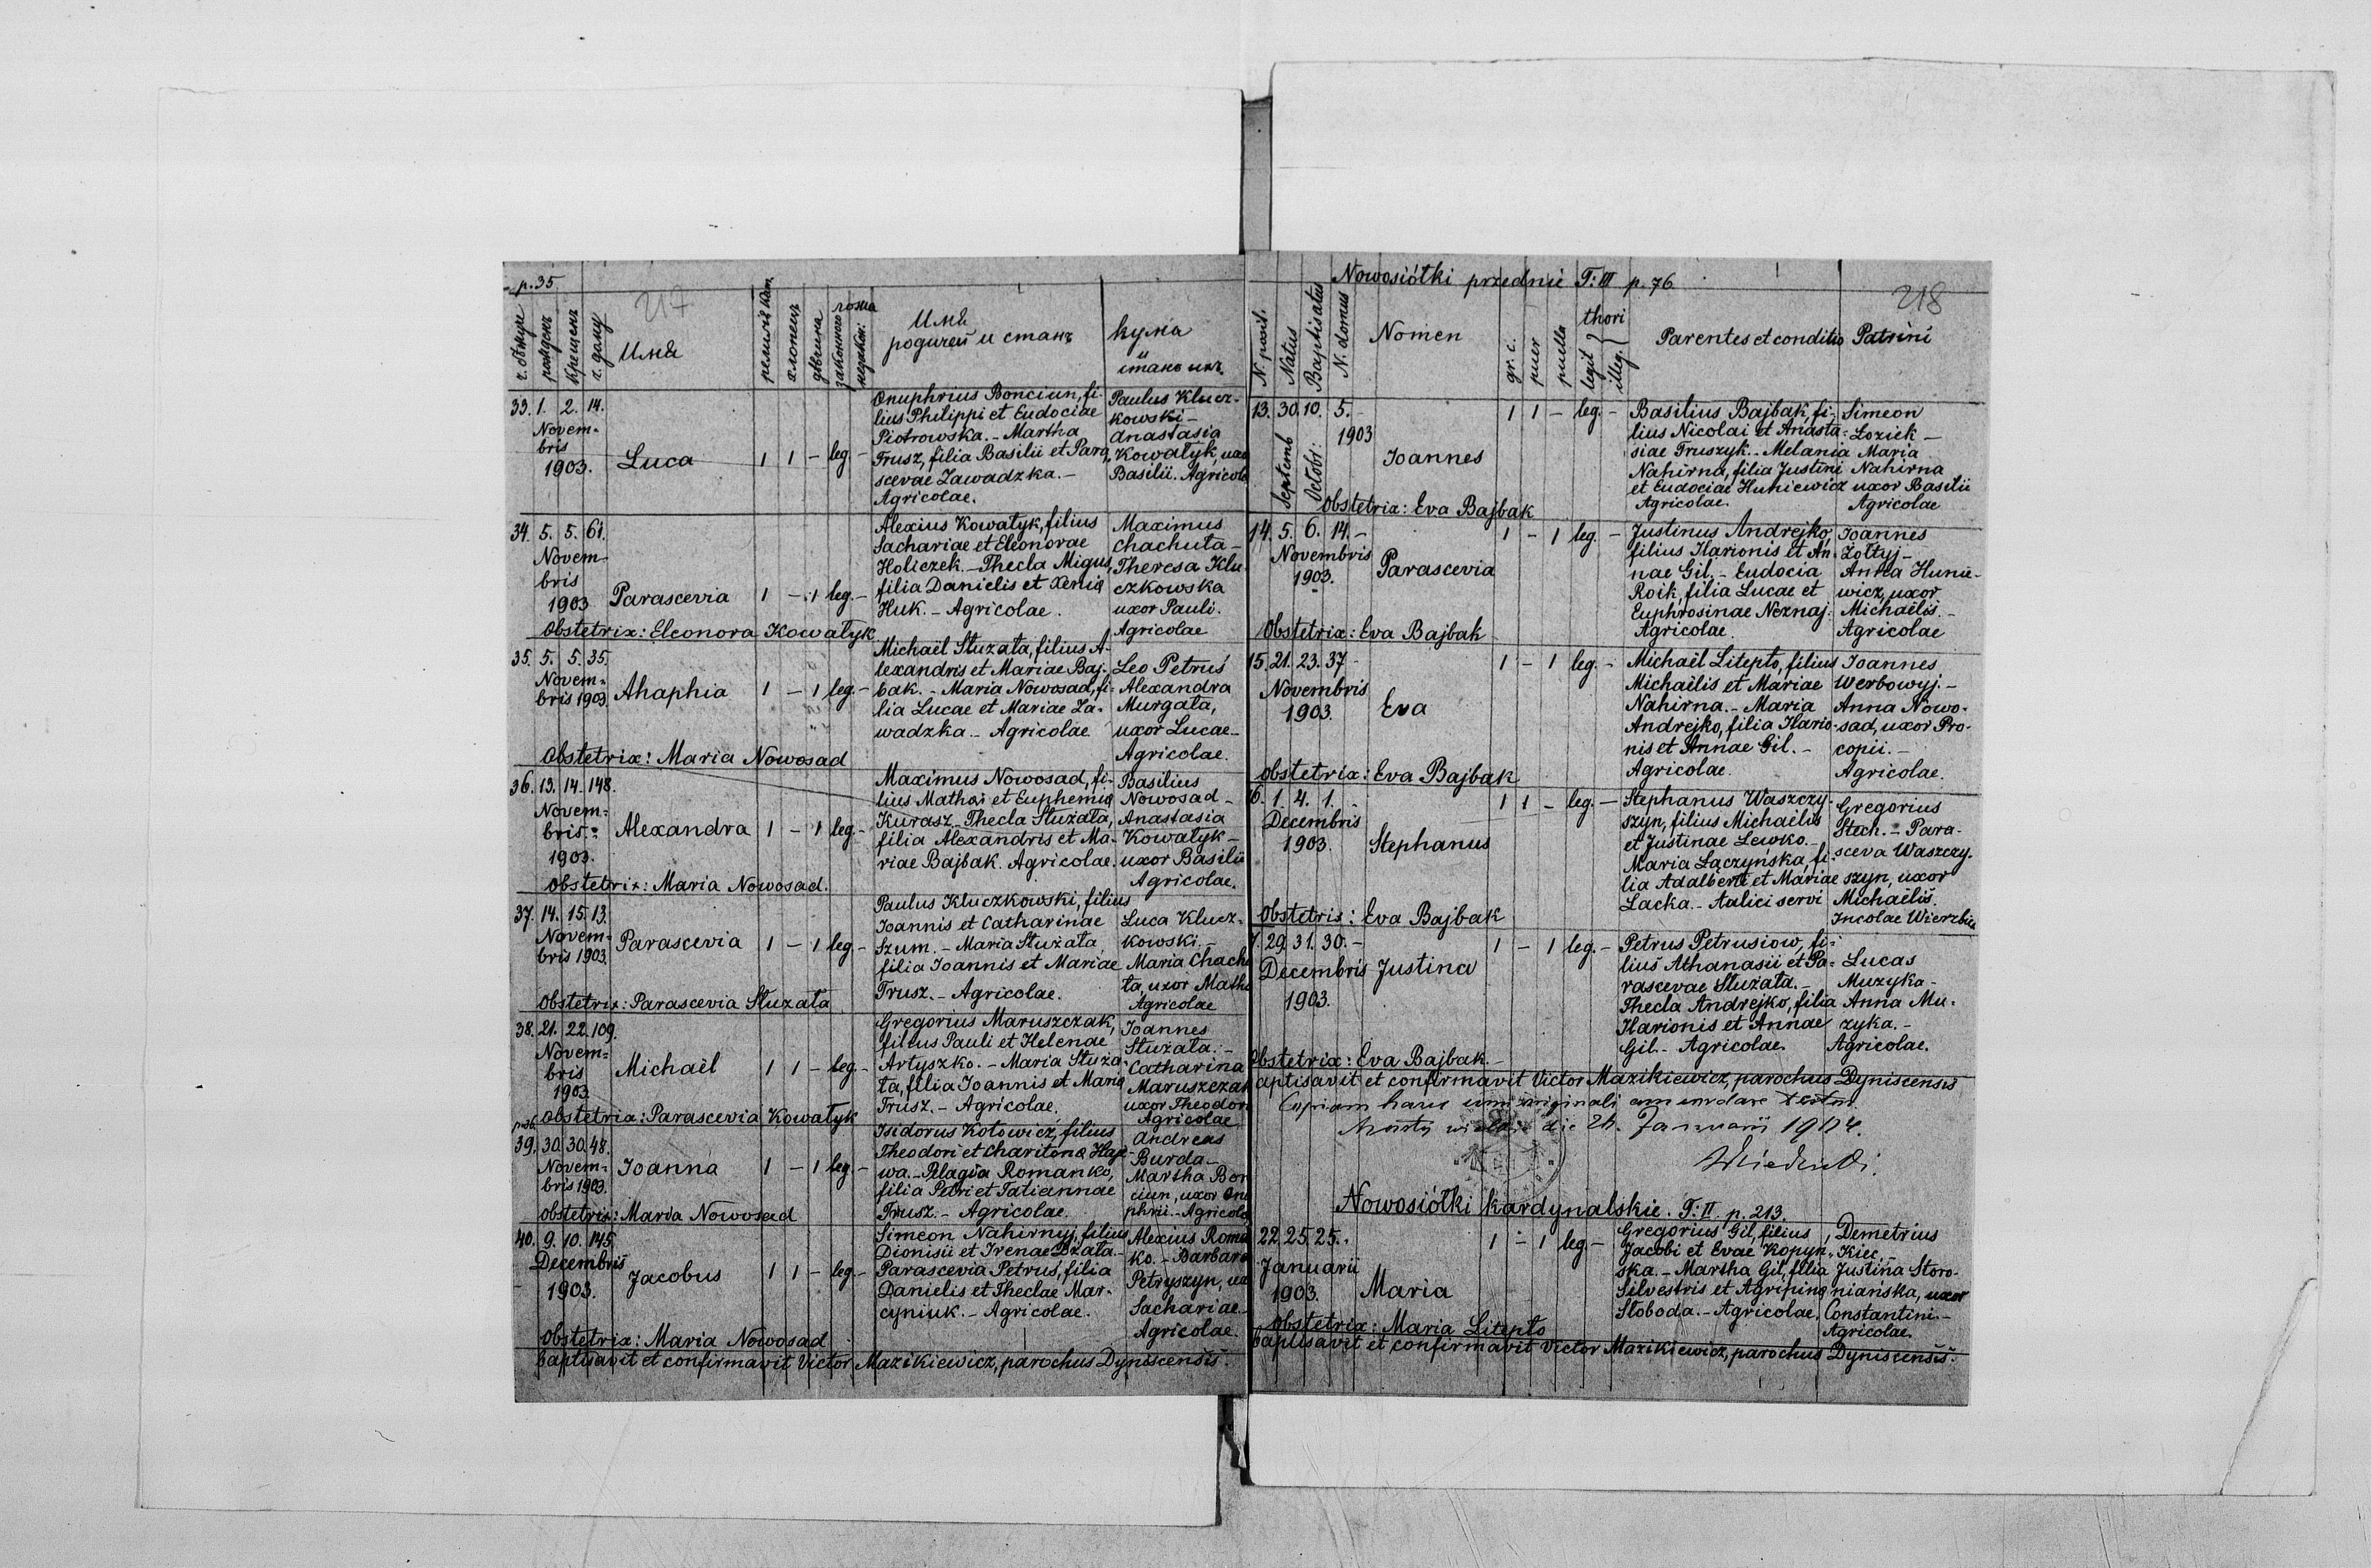 p. 35.
217
ч. бѣжуч.
рожденъ
Крещенъ
ч. дому
Имя
религія Кат.
хлопець
дѣвчина
законного
незакон:
ложа
Имя
родичей и станъ
Кума
и
станъ ихъ.
33. 1. 2. 14.
Novem-
bris
1903. Luca 1 1 - leg -
Onuphrius Bonciun, fi-
lius Philippi et Eudociae
Piotrowska. - Martha
Trusz, filia Basilii et Para,
scevae Zawadzka. -
Agricolae.
Paulus Klucz-
kowski -
Anastasia
Kowałyk, uxo
Basilii. Agricola
34. 5. 5. 61.
Novem-
bris
1903 Parascevia 1 - 1 leg. -
Alexius Kowałyk, filius
Sachariae et Eleonorae
Holiczek. - Thecla Migus,
filia Danielis et Xenia
Huk. - Agricolae.
Maximus
Chachuta -
Theresa Klu-
czkowska
uxor Pauli.
Agricolae
Obstetrix: Eleonora Kowałyk
35. 5. 5. 35.
Novem-
bris 1903. Ahaphia 1 - 1 leg. -
Michaël Służała, filius A-
lexandris et Mariae Baj-
bak. - Maria Nowosad, fi-
lia Lucae et Mariae Za-
wadzka. - Agricolae
Leo Petruś
Alexandra
Murgała,
uxor Lucae -
Agricolae.
Obstetrix: Maria Nowosad
36. 13. 14. 148.
Novem-
bris
1903. Alexandra 1 - 1 leg -
Maximus Nowosad, fi-
lius Mathai et Euphemia
Kurasz - Thecla Służała,
filia Alexandris et Ma-
riae Bajbak. Agricolae.
Basilius
Nowosad -
Anastasia
Kowałyk -
uxor Basilii
Agricolae.
Obstetrix: Maria Nowosad.
37. 14. 15. 13.
Novem-
bris 1903. Parascevia 1 - 1 leg -
Paulus Kluczkowski, filius
Ioannis et Catharinae
Szum. - Maria Służała
filia Ioannis et Mariae
Trusz. - Agricolae.
Luca Klucz-
kowski. -
Maria Chachu
ta, uxor Matha
Agricolae
Obstetrix: Parascevia Służała
38. 21. 22. 109.
Novem-
bris
1903. Michaël 1 1 - leg. -
Gregorius Maruszczak,
filius Pauli et Helenae
Artyszko. - Maria Służa-
ła, filia Ioannis et Maria
Trusz. - Agricolae.
Ioannes
Służała. -
Catharina
Maruszczak
uxor Theodori
Agricolae
Obstetrix: Parascevia Kowałyk
39. 30. 30. 48.
Novem-
bris 1903. Ioanna 1 - 1 leg -
Isidorus Kotowicz, filius
Theodori et Charitona Haje-
wa. - Pelagia Romanko,
filia Petri et Tatiannae
Trusz. - Agricolae.
Andreas
Burda -
Martha Bon
ciun, uxor Onu
phrii - Agricola
Obstetrix: Maria Nowosad
40. 9. 10. 145.
Decembris
1903. Jacobus 1 1 - leg. -
Simeon Nahirnyj, filius
Dionisii et Irenae Bżała. -
Parascevia Petruś, filia
Danielis et Theclae Mar-
cyniuk. - Agricolae.
Alexius Roman
ko. - Barbara
Petryszyn, ux
Sachariae -
Agricolae.
Obstetrix: Maria Nowosad
baptisavit et confirmavit Victor Mazikiewicz, parochus Dyniscensis.
Nowosiółki przednie T: III p. 76
218
N. posit.
Natus
Baptisatus
N. domus
Nomen
gr. c.
puer
puella
thori
legit
illeg.
Parentes et conditio
Patrini
13. 30. 10. 5. -
Septemb
Octobr:
1903
Ioannes 1 1 - leg. -
Basilius Bajbak, fi-
lius Nicolai et Anasta-
siae Truszyk. - Melania
Nahirna, filia Justini
et Eudociae Huniewicz
Agricolae.
Simeon
Łoziek -
Maria
Nahirna
uxor Basilii
Agricolae
Obstetrix: Eva Bajbak
14. 5. 6. 14. -
Novembris
1903. Parascevia 1 - 1 leg. -
Justinus Andrejko,
filius Ilarionis et An-
nae Gil. - Eudocia
Roik, filia Lucae et
Euphrosinae Neznaj.
Agricolae.
Ioannes
Żołtyj -
Anna Hunie-
wicz, uxor
Michaëlis. -
Agricolae
Obstetrix: Eva Bajbak
15. 21. 23. 37 -
Novembris
1903. Eva 1 - 1 leg. -
Michaël Litepło, filius
Michaëlis et Mariae
Nahirna. - Maria
Andrejko, filia Ilario-
nis et Annae Gil. -
Agricolae.
Ioannes
Werbowyj. -
Anna Nowo-
sad, uxor Pro-
copii. -
Agricolae.
Obstetrix: Eva Bajbak
16. 1. 4. 1. -
Decembris
1903. Stephanus 1 1 - leg. -
Stephanus Waszczy-
szyn, filius Michaëlis
et Justinae Lewko. -
Maria Łączyńska, fi-
lia Adalberti et Mariae
Lacka. - Aulici servi
Gregorius
Stech. - Para-
sceva Waszczy-
szyn, uxor
Michaëlis.
Incolae Wierzbica
Obstetrix: Eva Bajbak
7. 29. 31. 30. -
Decembris
1903. Justina 1 - 1 leg. -
Petrus Petrusiow, fi-
lius Athanasii et Pa-
rascevae Służała. -
Thecla Andrejko, filia
Ilarionis et Annae
Gil. - Agricolae.
Lucas
Muzyka -
Anna Mu-
zyka. -
Agricolae.
Obstetrix: Eva Bajbak. -
aptisavit et confirmavit Victor Mazikiewicz, parochus Dyniscensis
Copiam hanc cum originali concordare testor.
die 26. Januarii 1904.
Nowosiółki kardynalskie. T: II p. 213.
22 25 25. -
Januarii
1903. Maria 1 - 1 leg. -
Gregorius Gil, filius
Jacobi et Evae Kopyn-
ska. - Martha Gil, filia
Silvestris et Agripina
Słoboda. - Agricolae.
Demetrius
Kiec. -
Justina Storo-
niańska, uxor
Constantini. -
Agricolae.
Obstetrix: Maria Litepło
baptisavit et confirmavit Victor Mazikiewicz, parochus Dyniscensis.